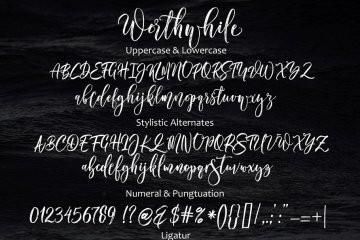 Worthwhile
Uppercase & Lowercase
ABCDEFGHIJKLMNOPQRSTUVWXYZ
abcdefghijklmnopqrstuvwxyz
Stylistic Alternates
ABCDEFGHIJKLMNOPQRSTUVWXYZ
abcdefghijklmnopqrstuvwxyz
Numeral & Pungtuation
0123456789 !?@&$#%*(){}[]/,.;':"_-=+|
Ligatur